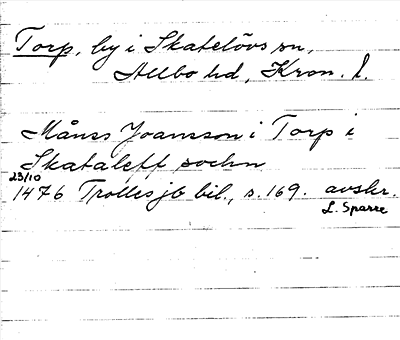 Torp, by i Skatelövs sn,
Allbo hd, Kron. l.
Månss Joansson i Torp i
Skataleff sochn
23/10
1476 Trolles jb bil., s. 169. avskr.
L. Sparre